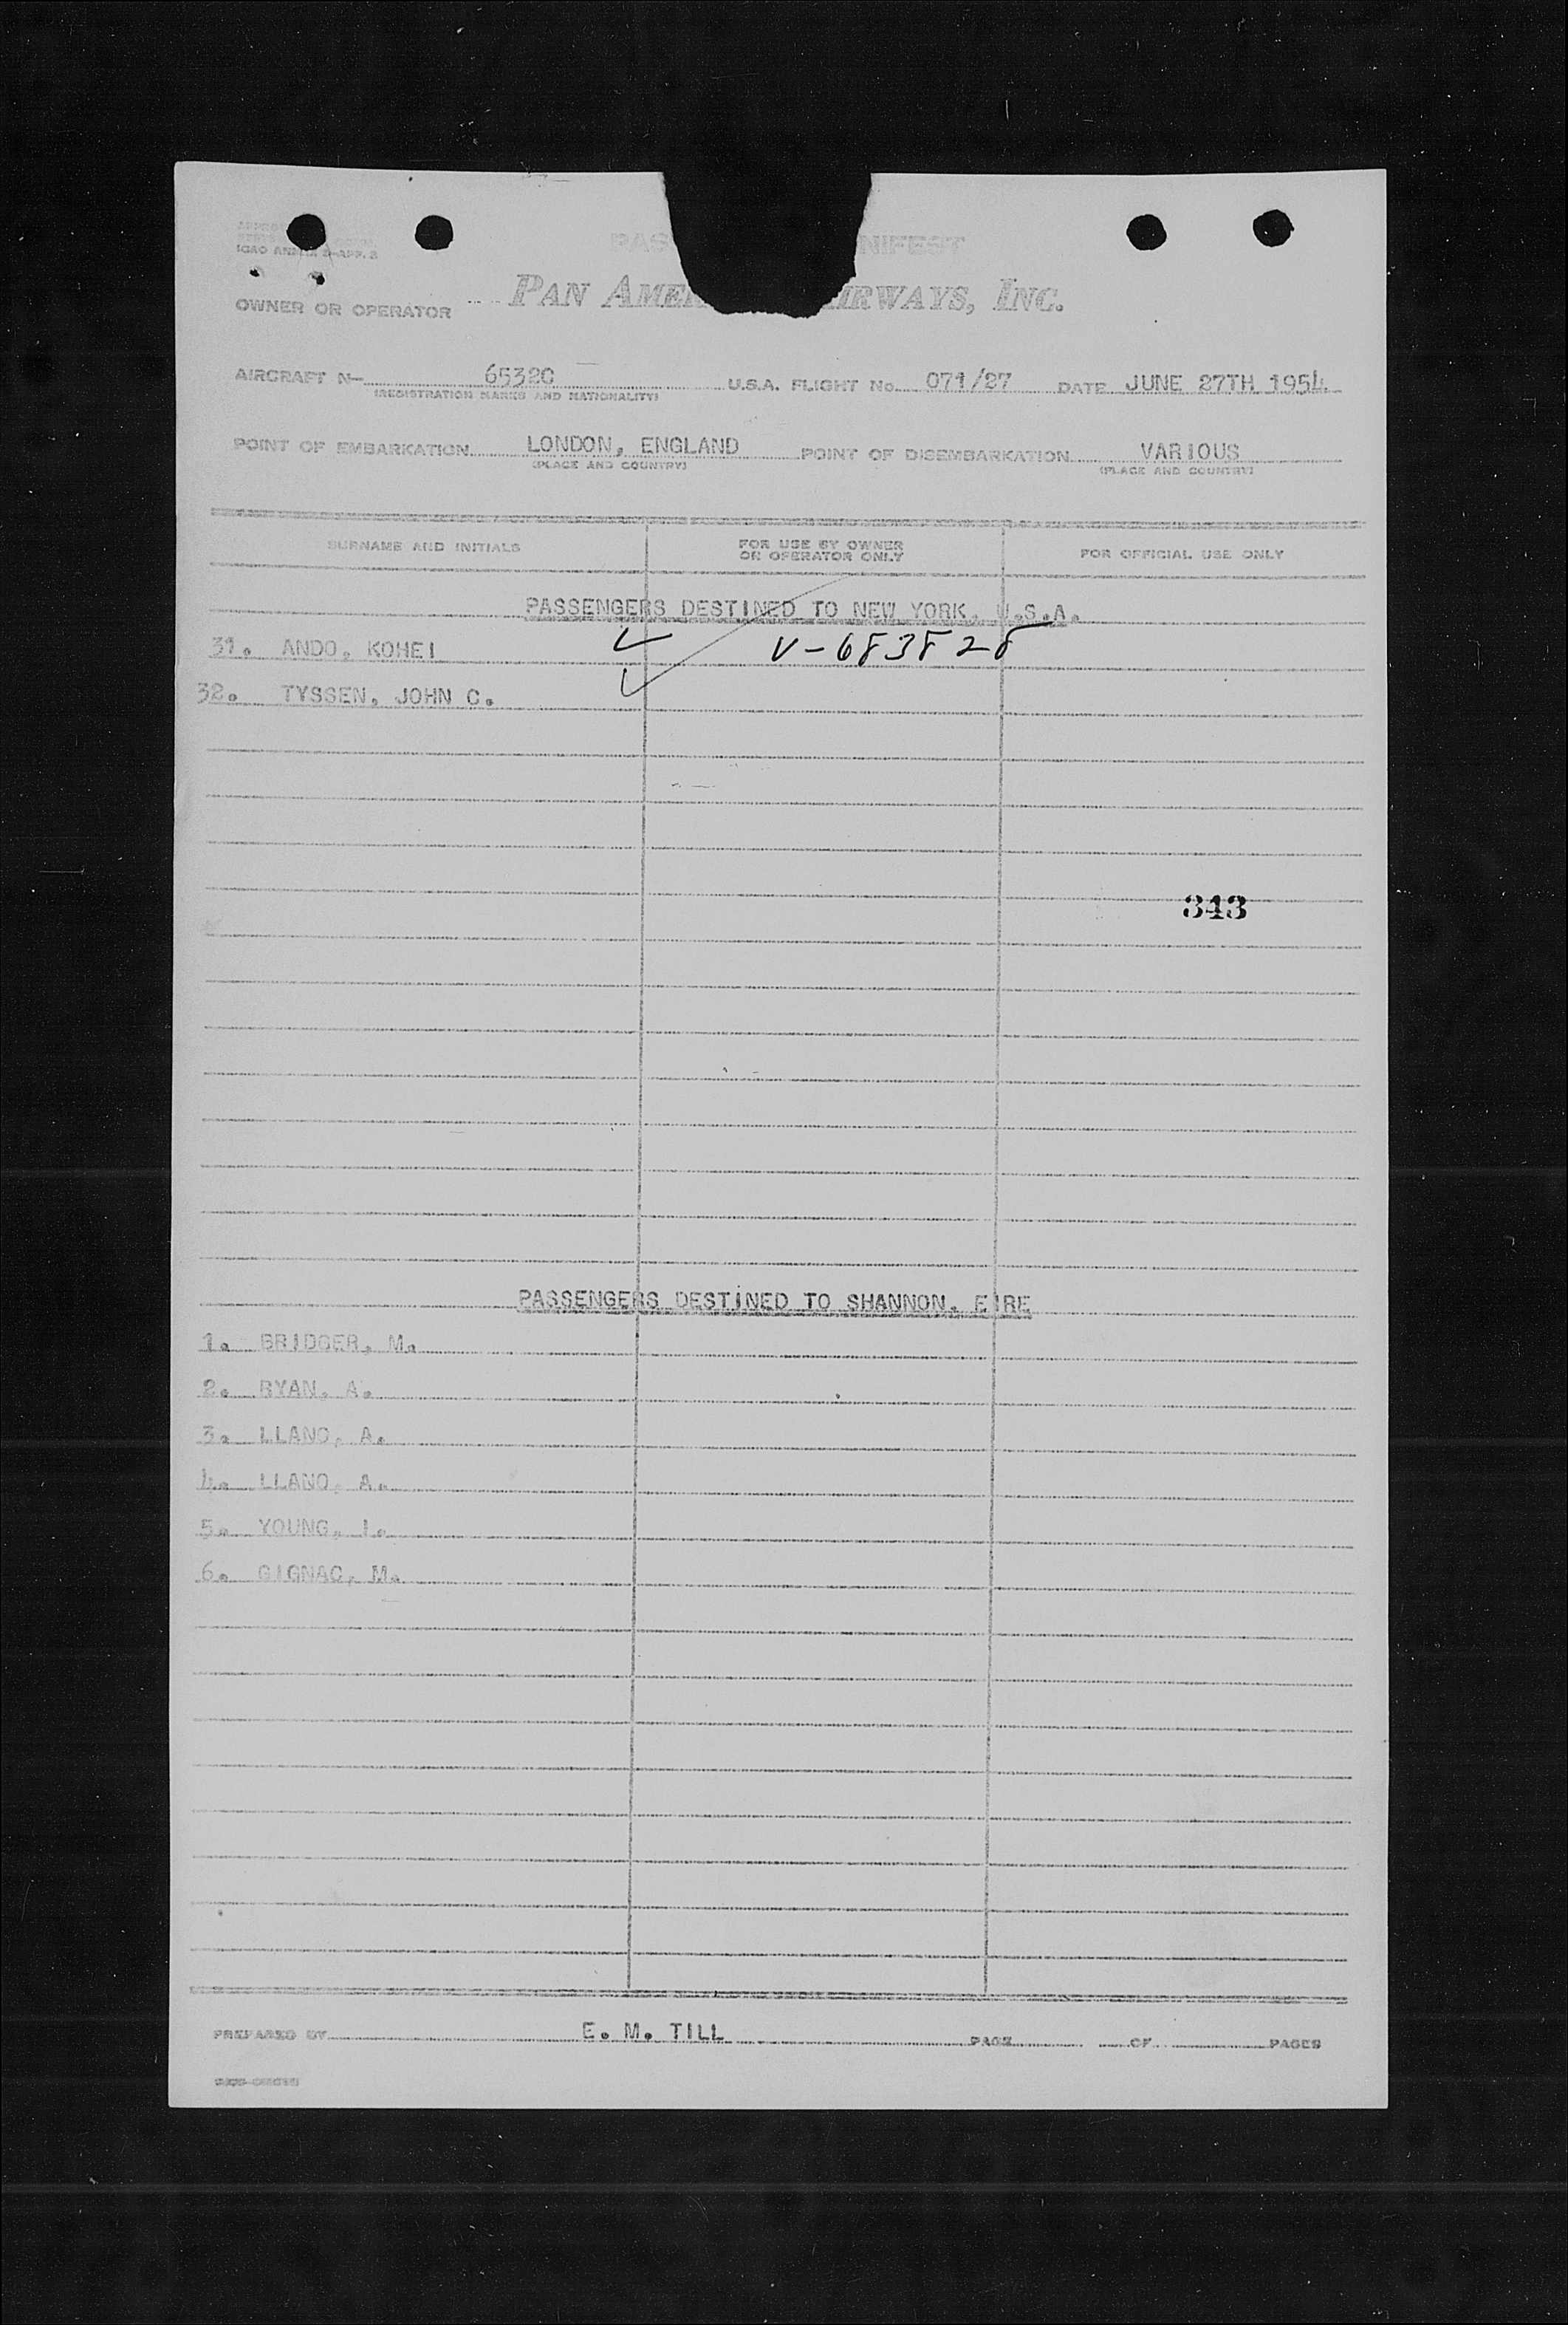 ICAO ANNEX 9-APP. 3
PAS NIFEST
OWNER OR OPERATOR PAN AMER IRWAYS, INC.
AIRCRAFT N- 6532C U.S.A. FLIGHT No. 071/27 DATE JUNE 27TH 1954
(REGISTRATION MARKS AND NATIONALITY)
POINT OF EMBARKATION LONDON, ENGLAND POINT OF DISEMBARKATION VARIOUS
(PLACE AND COUNTRY) (PLACE AND COUNTRY)
SURNAME AND INITIALS FOR USE BY OWNER OR OPERATOR ONLY FOR OFFICIAL USE ONLY
PASSENGERS DESTINED TO NEW YORK, U.S.A.
31. ANDO, KOHEI V-683828
32. TYSSEN, JOHN C.
343
PASSENGERS DESTINED TO SHANNON, EIRE
1. BRIDGER, M.
2. RYAN, A.
3. LLANO, A.
4. LLANO, A.
5. YOUNG, I.
6. GIGNAC, M.
PREPARED BY E. M. TILL PAGE OF PAGES